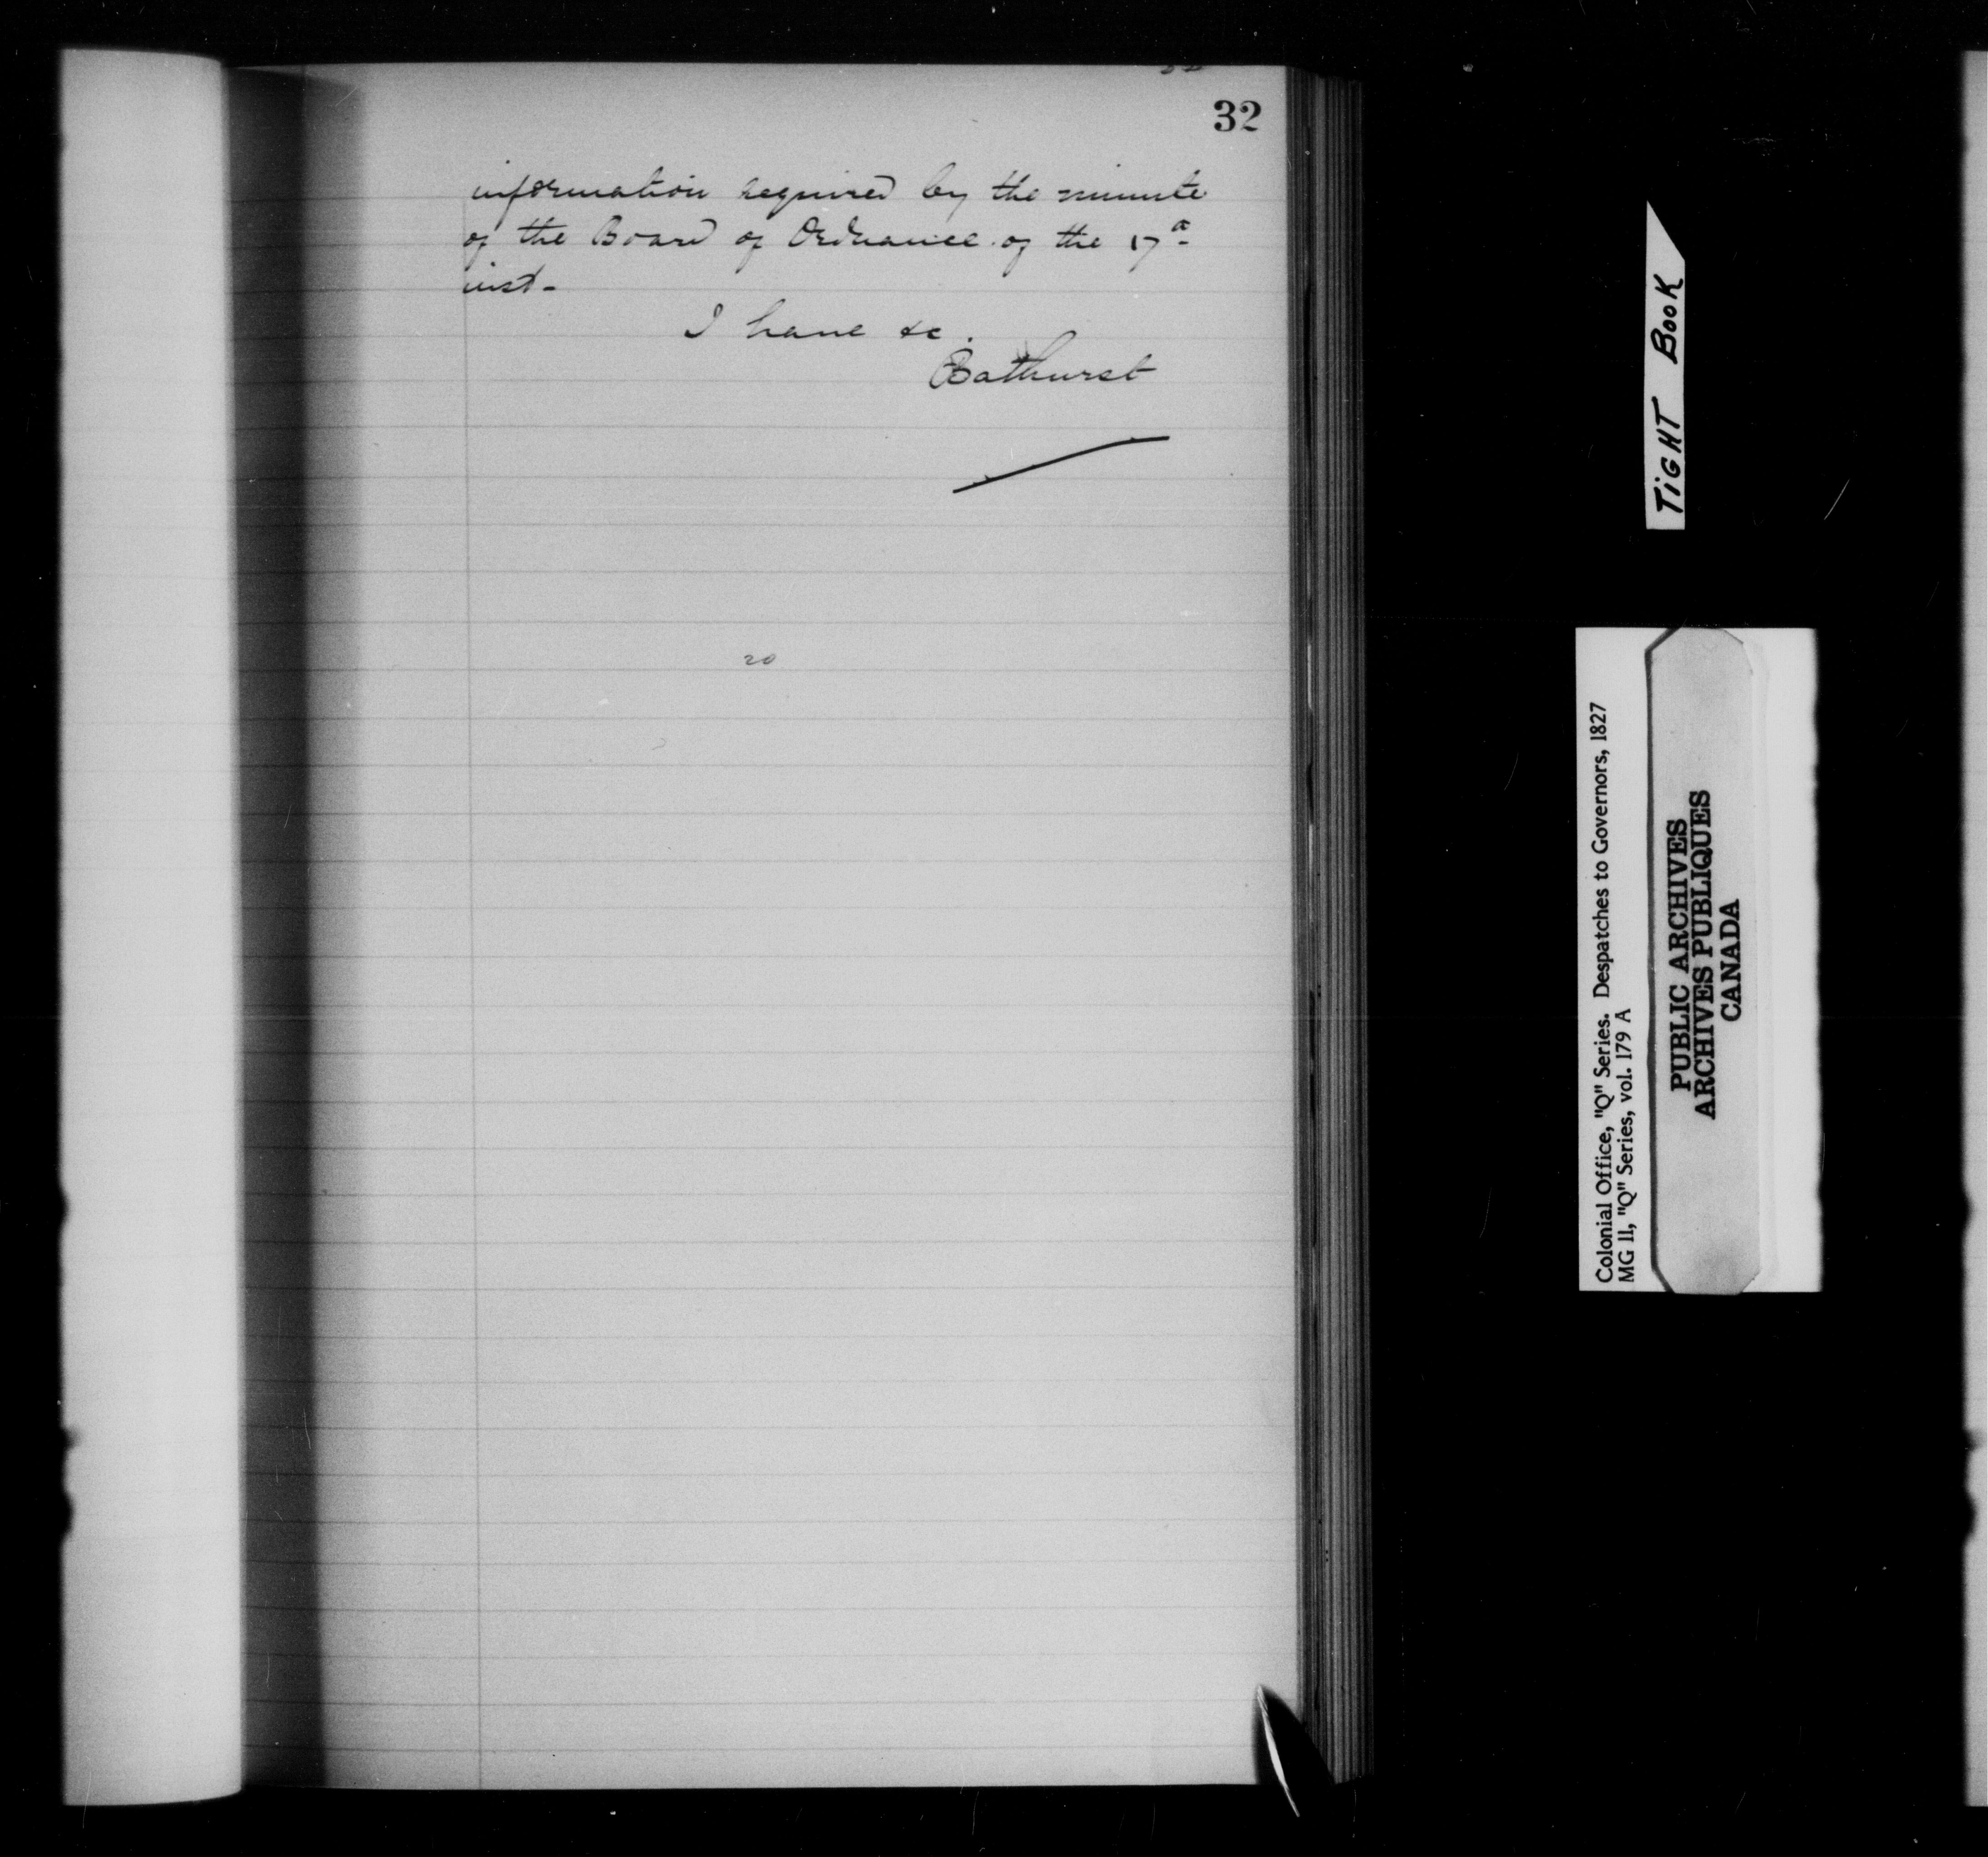 32
information required by the minute
of the Board of Ordnance of the 17th
inst-
I have &c.
Bathurst
20
TiGHT BooK
Colonial Office, "Q" Series. Despatches to Governors, 1827
MG 11, "Q" Series, vol. 179 A
PUBLIC ARCHIVES
ARCHIVES PUBLIQUES
CANADA